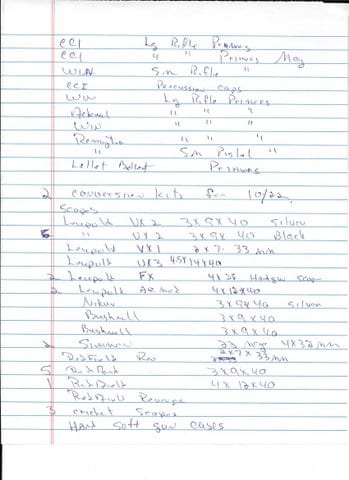 CCI Lg Rifle Primers
CCI " " Primers Mag
WIN Sm Rifle "
CCI Percussion Caps
WIN Lg Rifle Primers
" " "
WIN " " "
Remington " " "
" Sm Pistol "
Primers
2 conversion kits for 10/22
Scopes
Leupold VX 2 3x9x40 Silver
" VX 2 3x9x40 Black
Leupold VX1 2x7 33 mm
Leupold VX3 45x14x40
2 Leupold FX 4x28 Handgun Scope
2 Leupold 4x12x40
Nikon 3x9x40 Silver
Bushnell 3x9x40
Bushnell 3x9x40
2 Simmon 22 mag 4x32mm
Redfield Rev 2x7x33 33mm
5 Redfield 3x9x40
1 Redfield 4x12x40
Redfield Revenge
3 cricket Scopes
Hard Soft gun cases